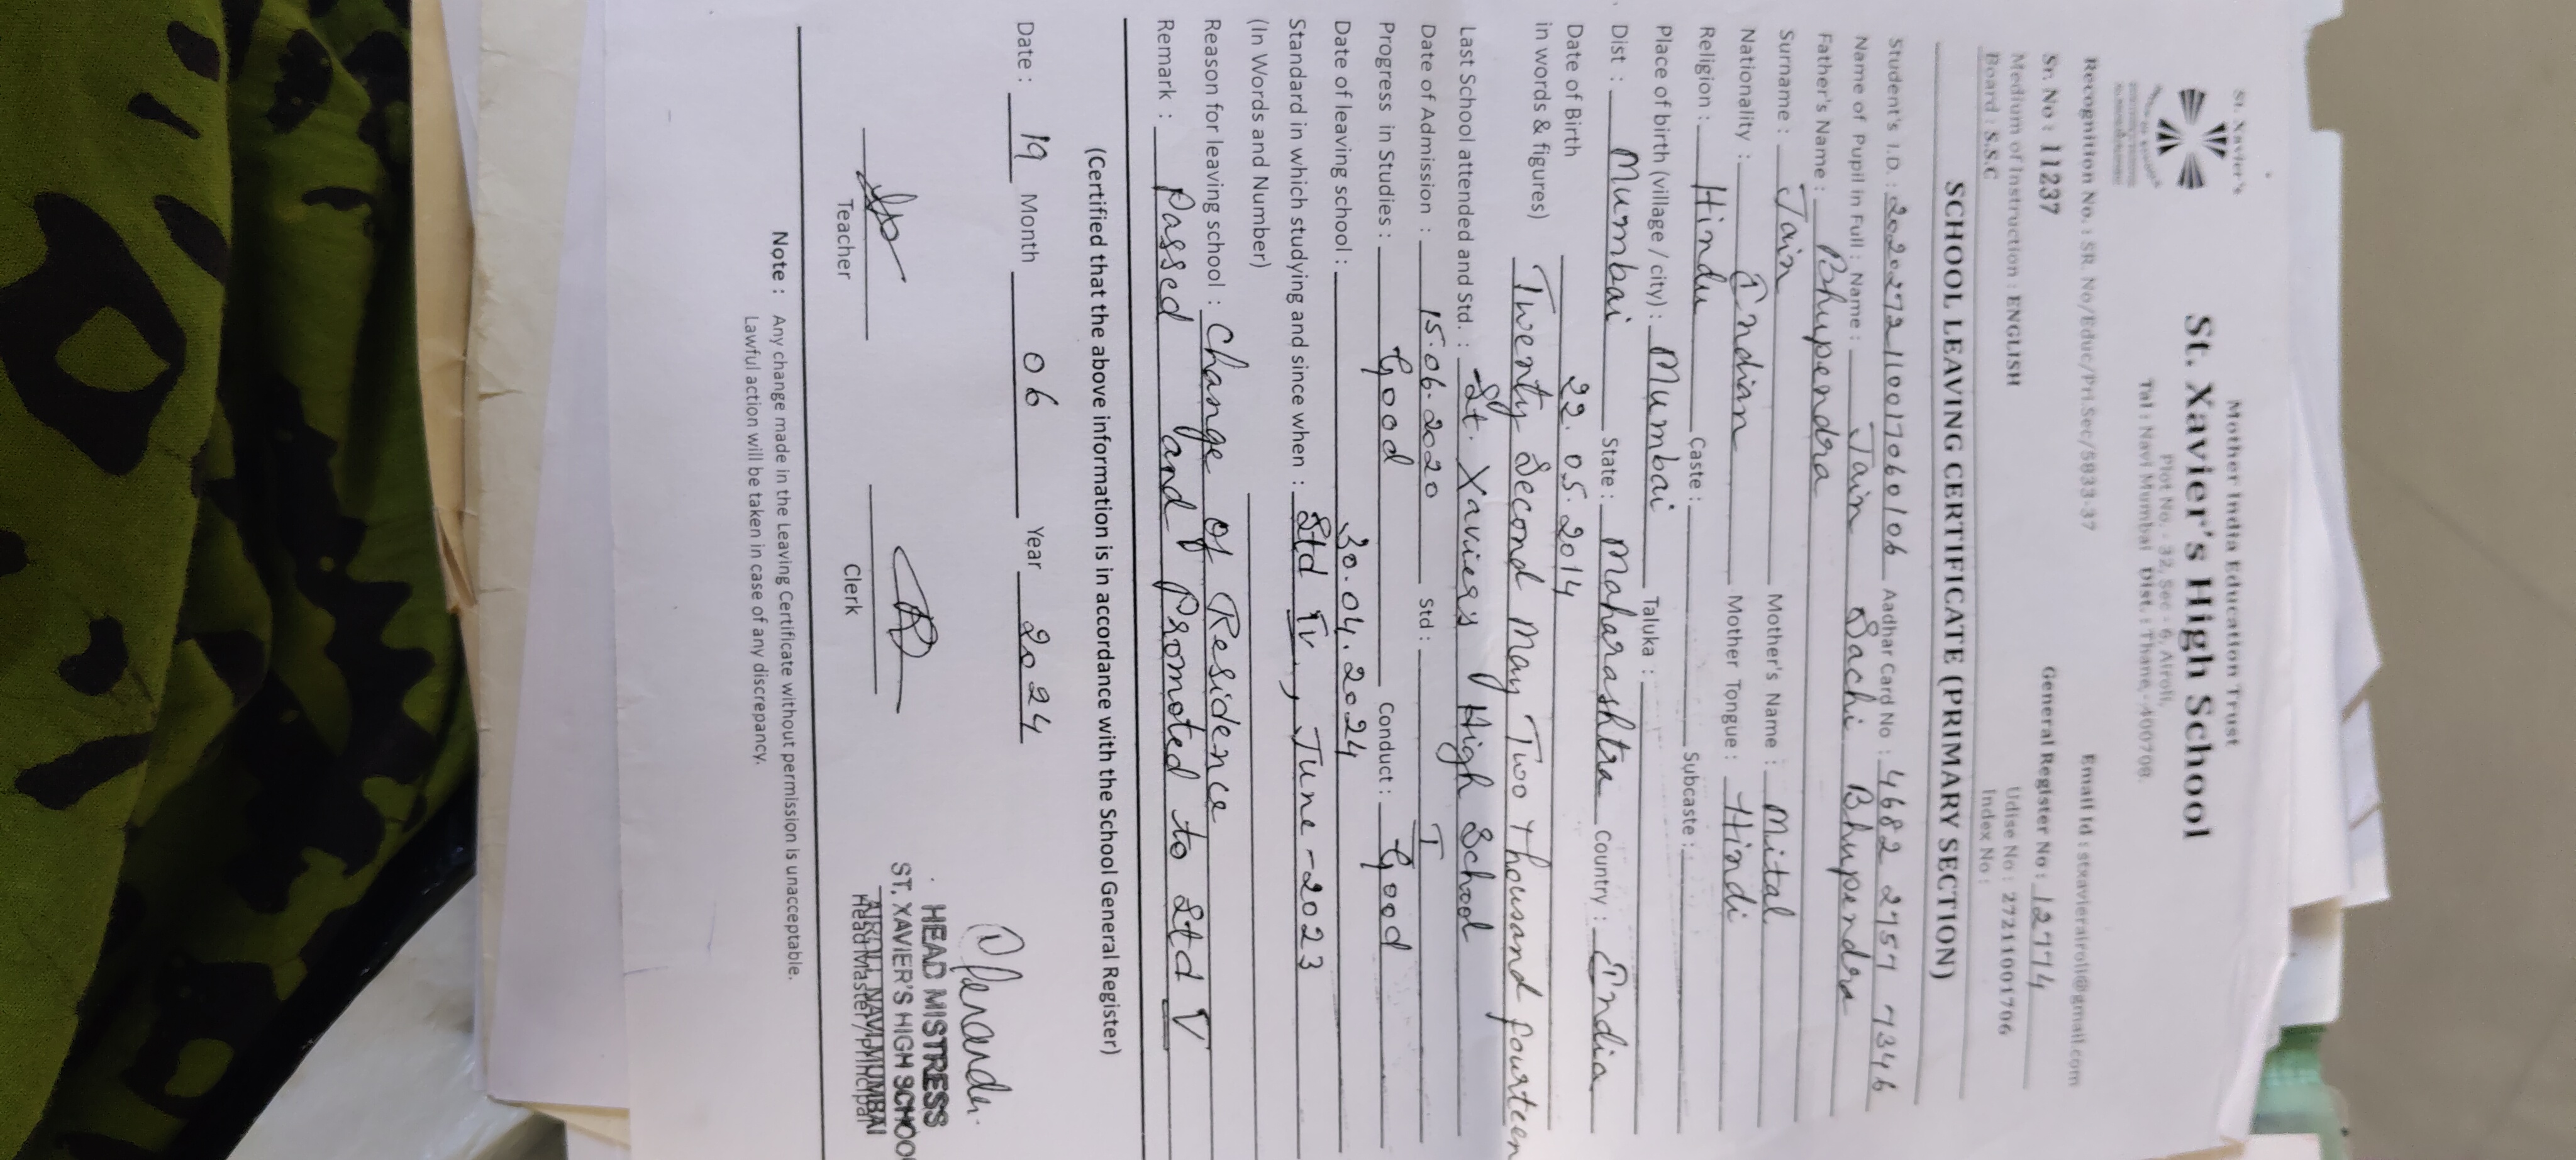 St. Xavier's
Mother India Education Trust
St. Xavier's High School
Plot No. - 32, Sec - 6, Airoli,
Tal : Navi Mumbai Dist. : Thane,-400708.
Recognition No. : SR. No/Educ/Pri.Sec/5833-37 Email Id : stxavierairoli@gmail.com
Sr. No : 11237 General Register No : 12774
Medium of Instruction : ENGLISH Udise No : 27211001706
Board : S.S.C Index No :
SCHOOL LEAVING CERTIFICATE (PRIMARY SECTION)
Student's I.D. : Aadhar Card No : 4682 2957 7346
Name of Pupil in Full : Name : Jain Sachi Bhupendra
Father's Name : Bhupendra
Surname : Jain Mother's Name : Mital
Nationality : Indian Mother Tongue : Hindi
Religion : Hindu Caste : Subcaste :
Place of birth (village / city) : Mumbai Taluka :
Dist : Mumbai State : Maharashtra Country : India
Date of Birth 22.05.2014
in words & figures) Twenty Second May Two Thousand fourteen
Last School attended and Std. : St. Xavier's High School
Date of Admission : 15.06.2020 Std : I
Progress in Studies : Good Conduct : Good
Date of leaving school : 30.04.2024
Standard in which studying and since when : Std IV, June-2023
(In Words and Number)
Reason for leaving school : Change of Residence
Remark : Passed and Promoted to Std V
(Certified that the above information is in accordance with the School General Register)
Date : 19 Month 06 Year 2024
HEAD MISTRESS
ST. XAVIER'S HIGH SCHOO
AIROLI, NAVI MUMBAI
Teacher Clerk Head Master/Principal
Note : Any change made in the Leaving Certificate without permission is unacceptable.
Lawful action will be taken in case of any discrepancy.